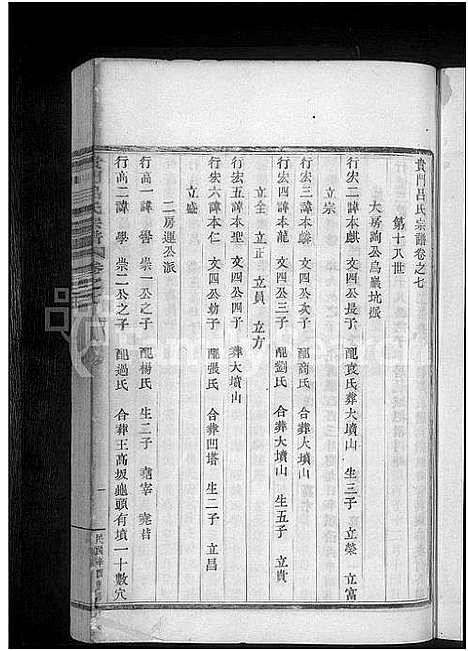 貴門呂氏宗譜卷之七
第十八世
大房詢公烏巖坑派
行宏二諱本麒 文四公長子 配袁氏葬大墳山 生三子 立榮 立富
立宗
行宏三諱本 文四公次子 配商氏 合葬大墳山
行宏四諱本龍 文四公三子 配劉氏 合葬大墳山 生五子 立貴
立全 立正 立員 立方
行宏五諱本聖 文四公四子 葬大墳山
行宏六諱本仁 文四公幼子 配張氏 合葬凹塔 生二子 立昌
立盛
二房運公派
行高一諱 崇一公之子 配楊氏 生二子 堯宰 堯君
行高二諱 學 崇二公之子 配過氏 合葬王高坂龜頭有墳一十數穴
貴門呂氏宗譜 卷之七
一